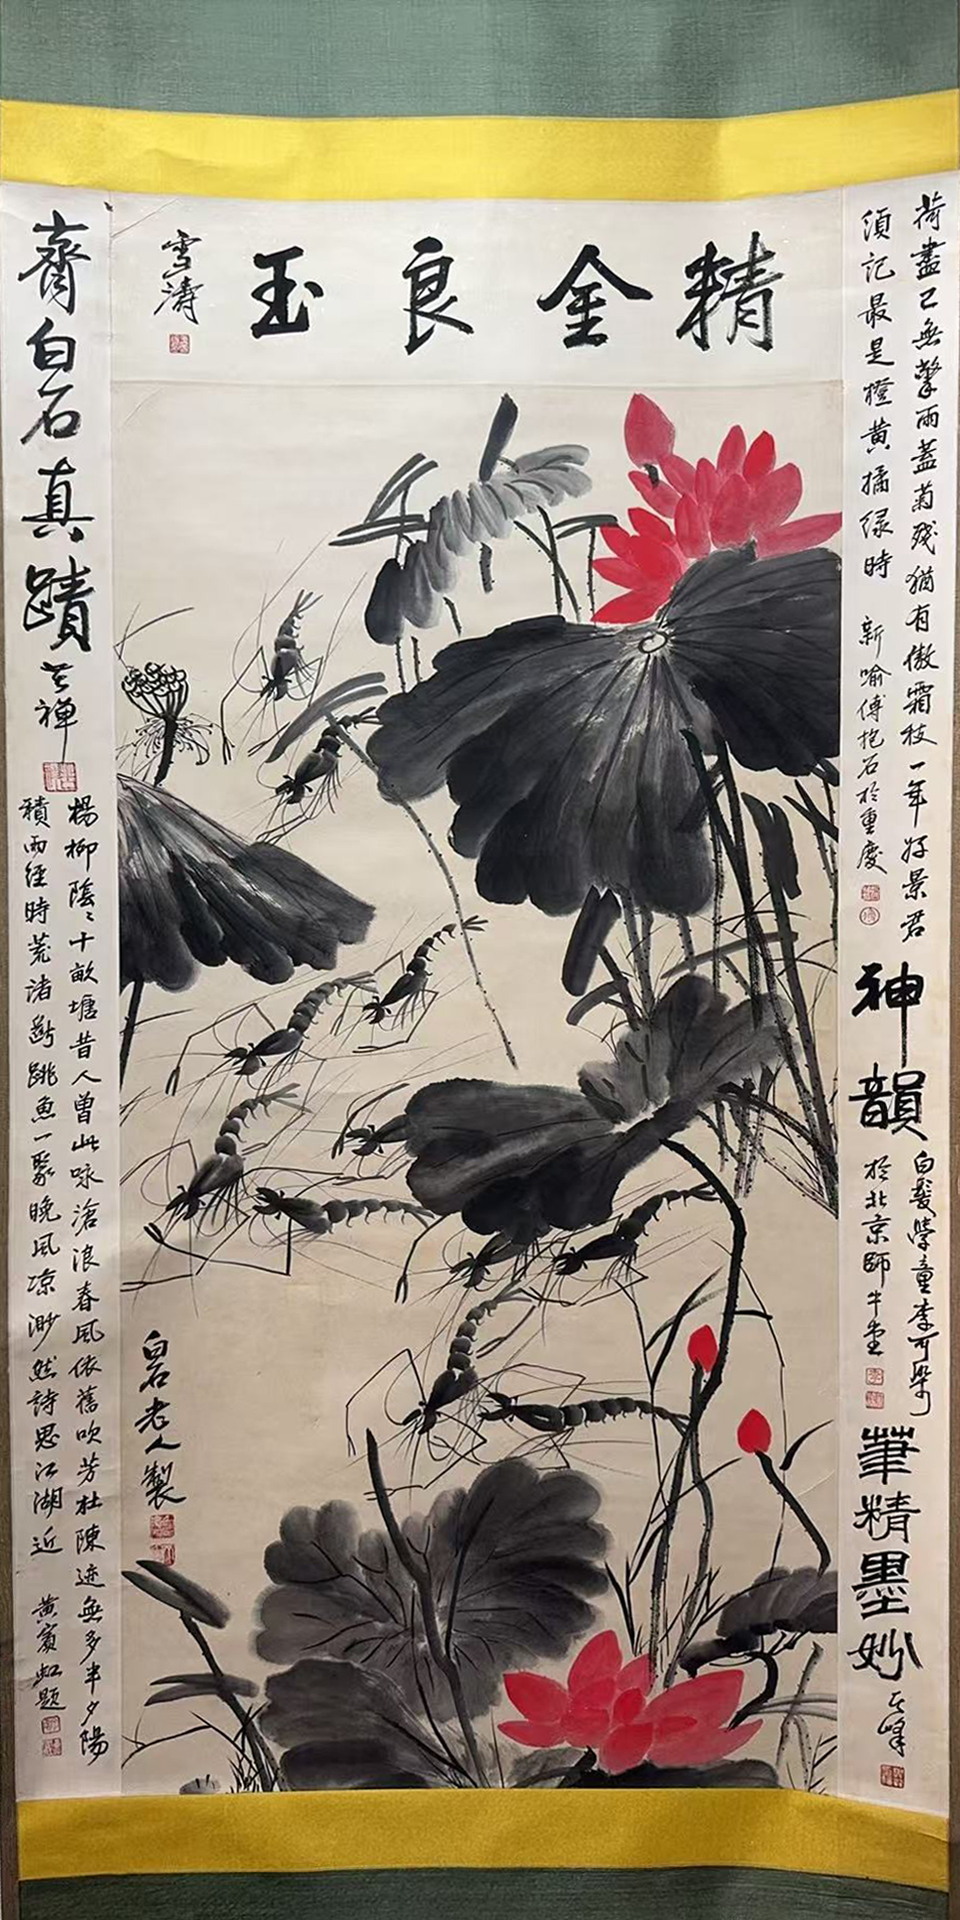 精金良玉
雪濤
荷盡已無擎雨蓋菊殘猶有傲霜枝一年好景君
須記最是橙黃橘緑時
新喻傅抱石於重慶
神韻
白髮學童李可染
於北京師牛堂
筆精墨妙
其峰
齊白石真蹟
楊柳陰〻十畝塘昔人曾此咏滄浪春風依舊吹芳杜陳迹無多半夕陽
積雨經時荒渚斷跳魚一聚晚風凉渺然詩思江湖近
黃賓虹題
白石老人製